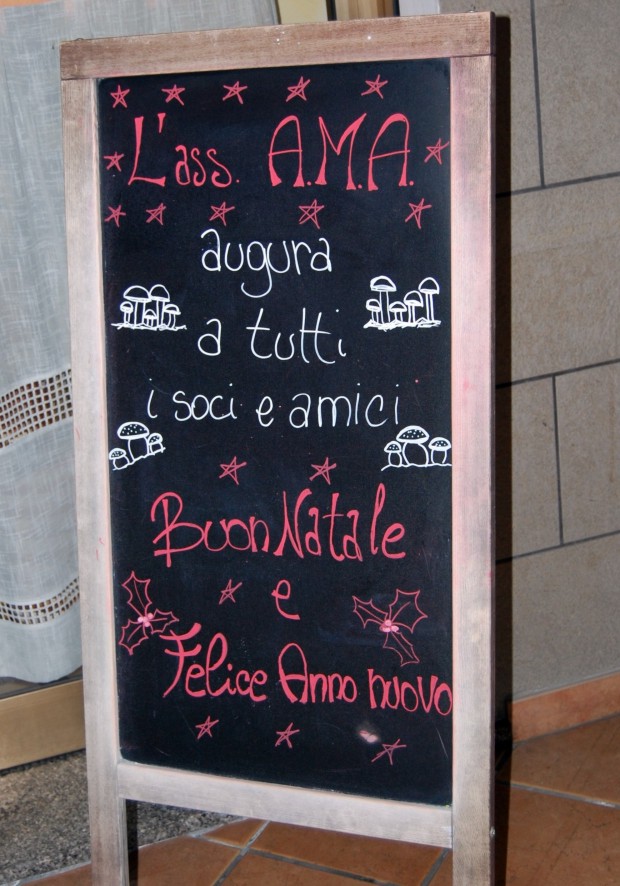 L'ass. A.M.A.
augura
a tutti
i soci e amici
Buon Natale
e
Felice Anno nuovo